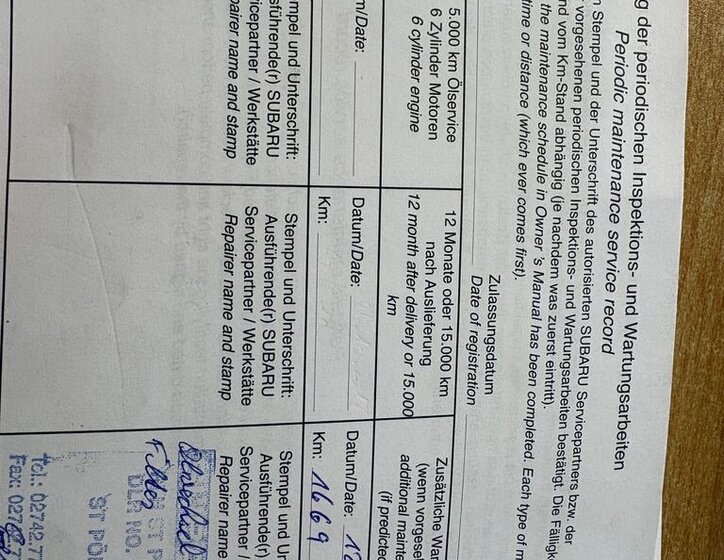 g der periodischen Inspektions- und Wartungsarbeiten
Periodic maintenance service record
n Stempel und der Unterschrift des autorisierten SUBARU Servicepartners bzw. der
vorgesehenen periodischen Inspektions- und Wartungsarbeiten bestätigt. Die Fälligk
nd vom Km-Stand abhängig (je nachdem was zuerst eintritt).
the maintenance schedule in Owner´s Manual has been completed. Each type of m
time or distance (which ever comes first).
Zulassungsdatum
Date of registration
5.000 km Ölservice
6 Zylinder Motoren
6 cylinder engine
m/Date:
mpel und Unterschrift:
sführende(r) SUBARU
rvicepartner / Werkstätte
pairer name and stamp
12 Monate oder 15.000 km
nach Auslieferung
12 month after delivery or 15.000
km
Datum/Date:
Km:
Stempel und Unterschrift:
Ausführende(r) SUBARU
Servicepartner / Werkstätte
Repairer name and stamp
Zusätzliche Wa
(wenn vorgese
additional mainte
(if predicte
Datum/Date: 12
Km: 1669
Stempel und Unters
Ausführende(r) SU
Servicepartner /
Repairer name
Ölwechsel
Filter
DLR NO.
ST PÖL
Tel.: 02742.77
Fax: 0274